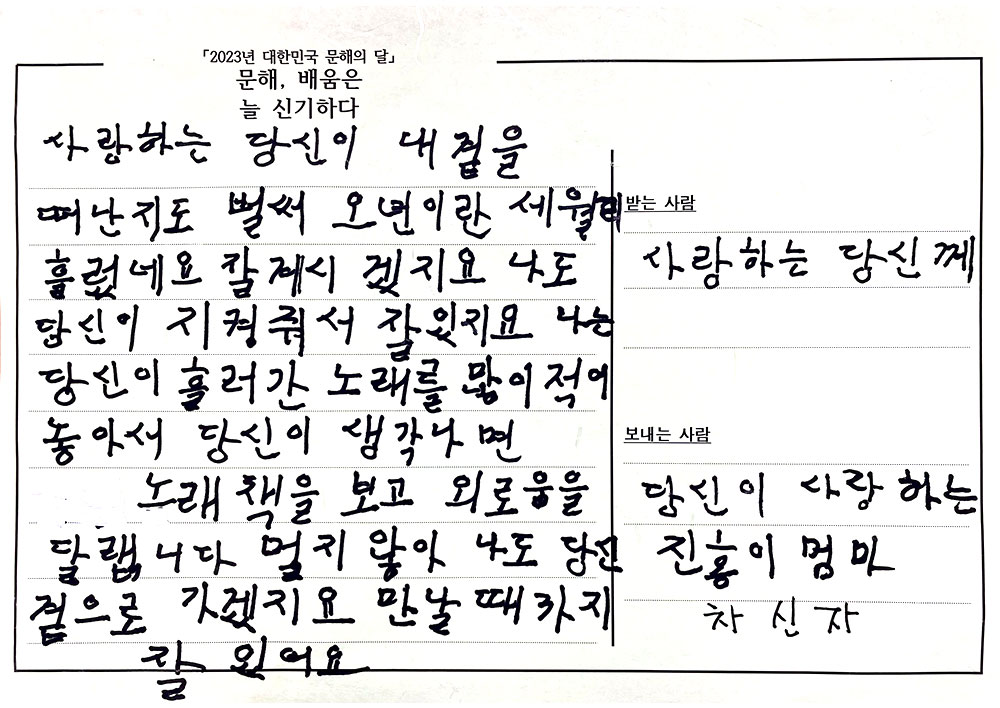 「2023년 대한민국 문해의 달」
문해, 배움은
늘 신기하다
사랑하는 당신이 내 곁을
떠난지도 벌써 오년이란 세월이
흘렀네요 잘계시 겠지요 나도
당신이 지켜줘서 잘있지요 나는
당신이 흘러간 노래를 많이 적어
놓아서 당신이 생각나면
노래 책을 보고 외로움을
달랩니다 멀지 않아 나도 당신
곁으로 가겠지요 만날 때까지
잘 있어요
받는 사람
사랑하는 당신께
보내는 사람
당신이 사랑하는
진홍이 멈마
차신자